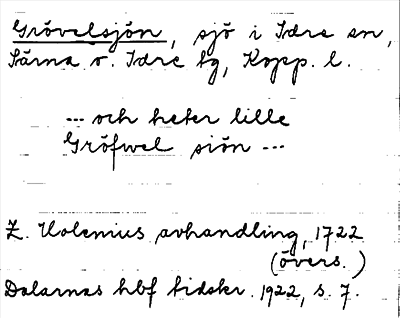 Grövelsjön, sjö i Idre sn,
Särna o. Idre tg, Kopp. l.
... och heter lille
Gröfwel siön ...
Z. Holenius avhandling, 1722
(övers.)
Dalarnas hbf tidskr. 1922, s. 7.